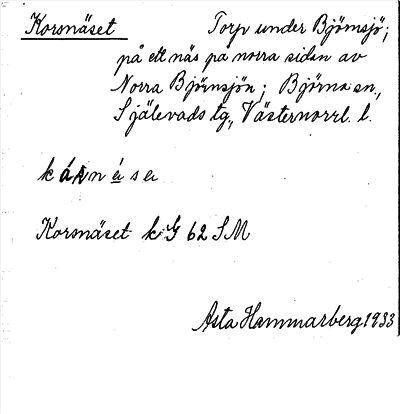 Korsnäset Torp under Björnsjö;
på ett näs på norra sidan av
Norra Björnsjön; Björna sn.,
Själevads tg., Västernorrl. l.
Korsnäset k. G 62 SM
Asta Hammarberg 1933